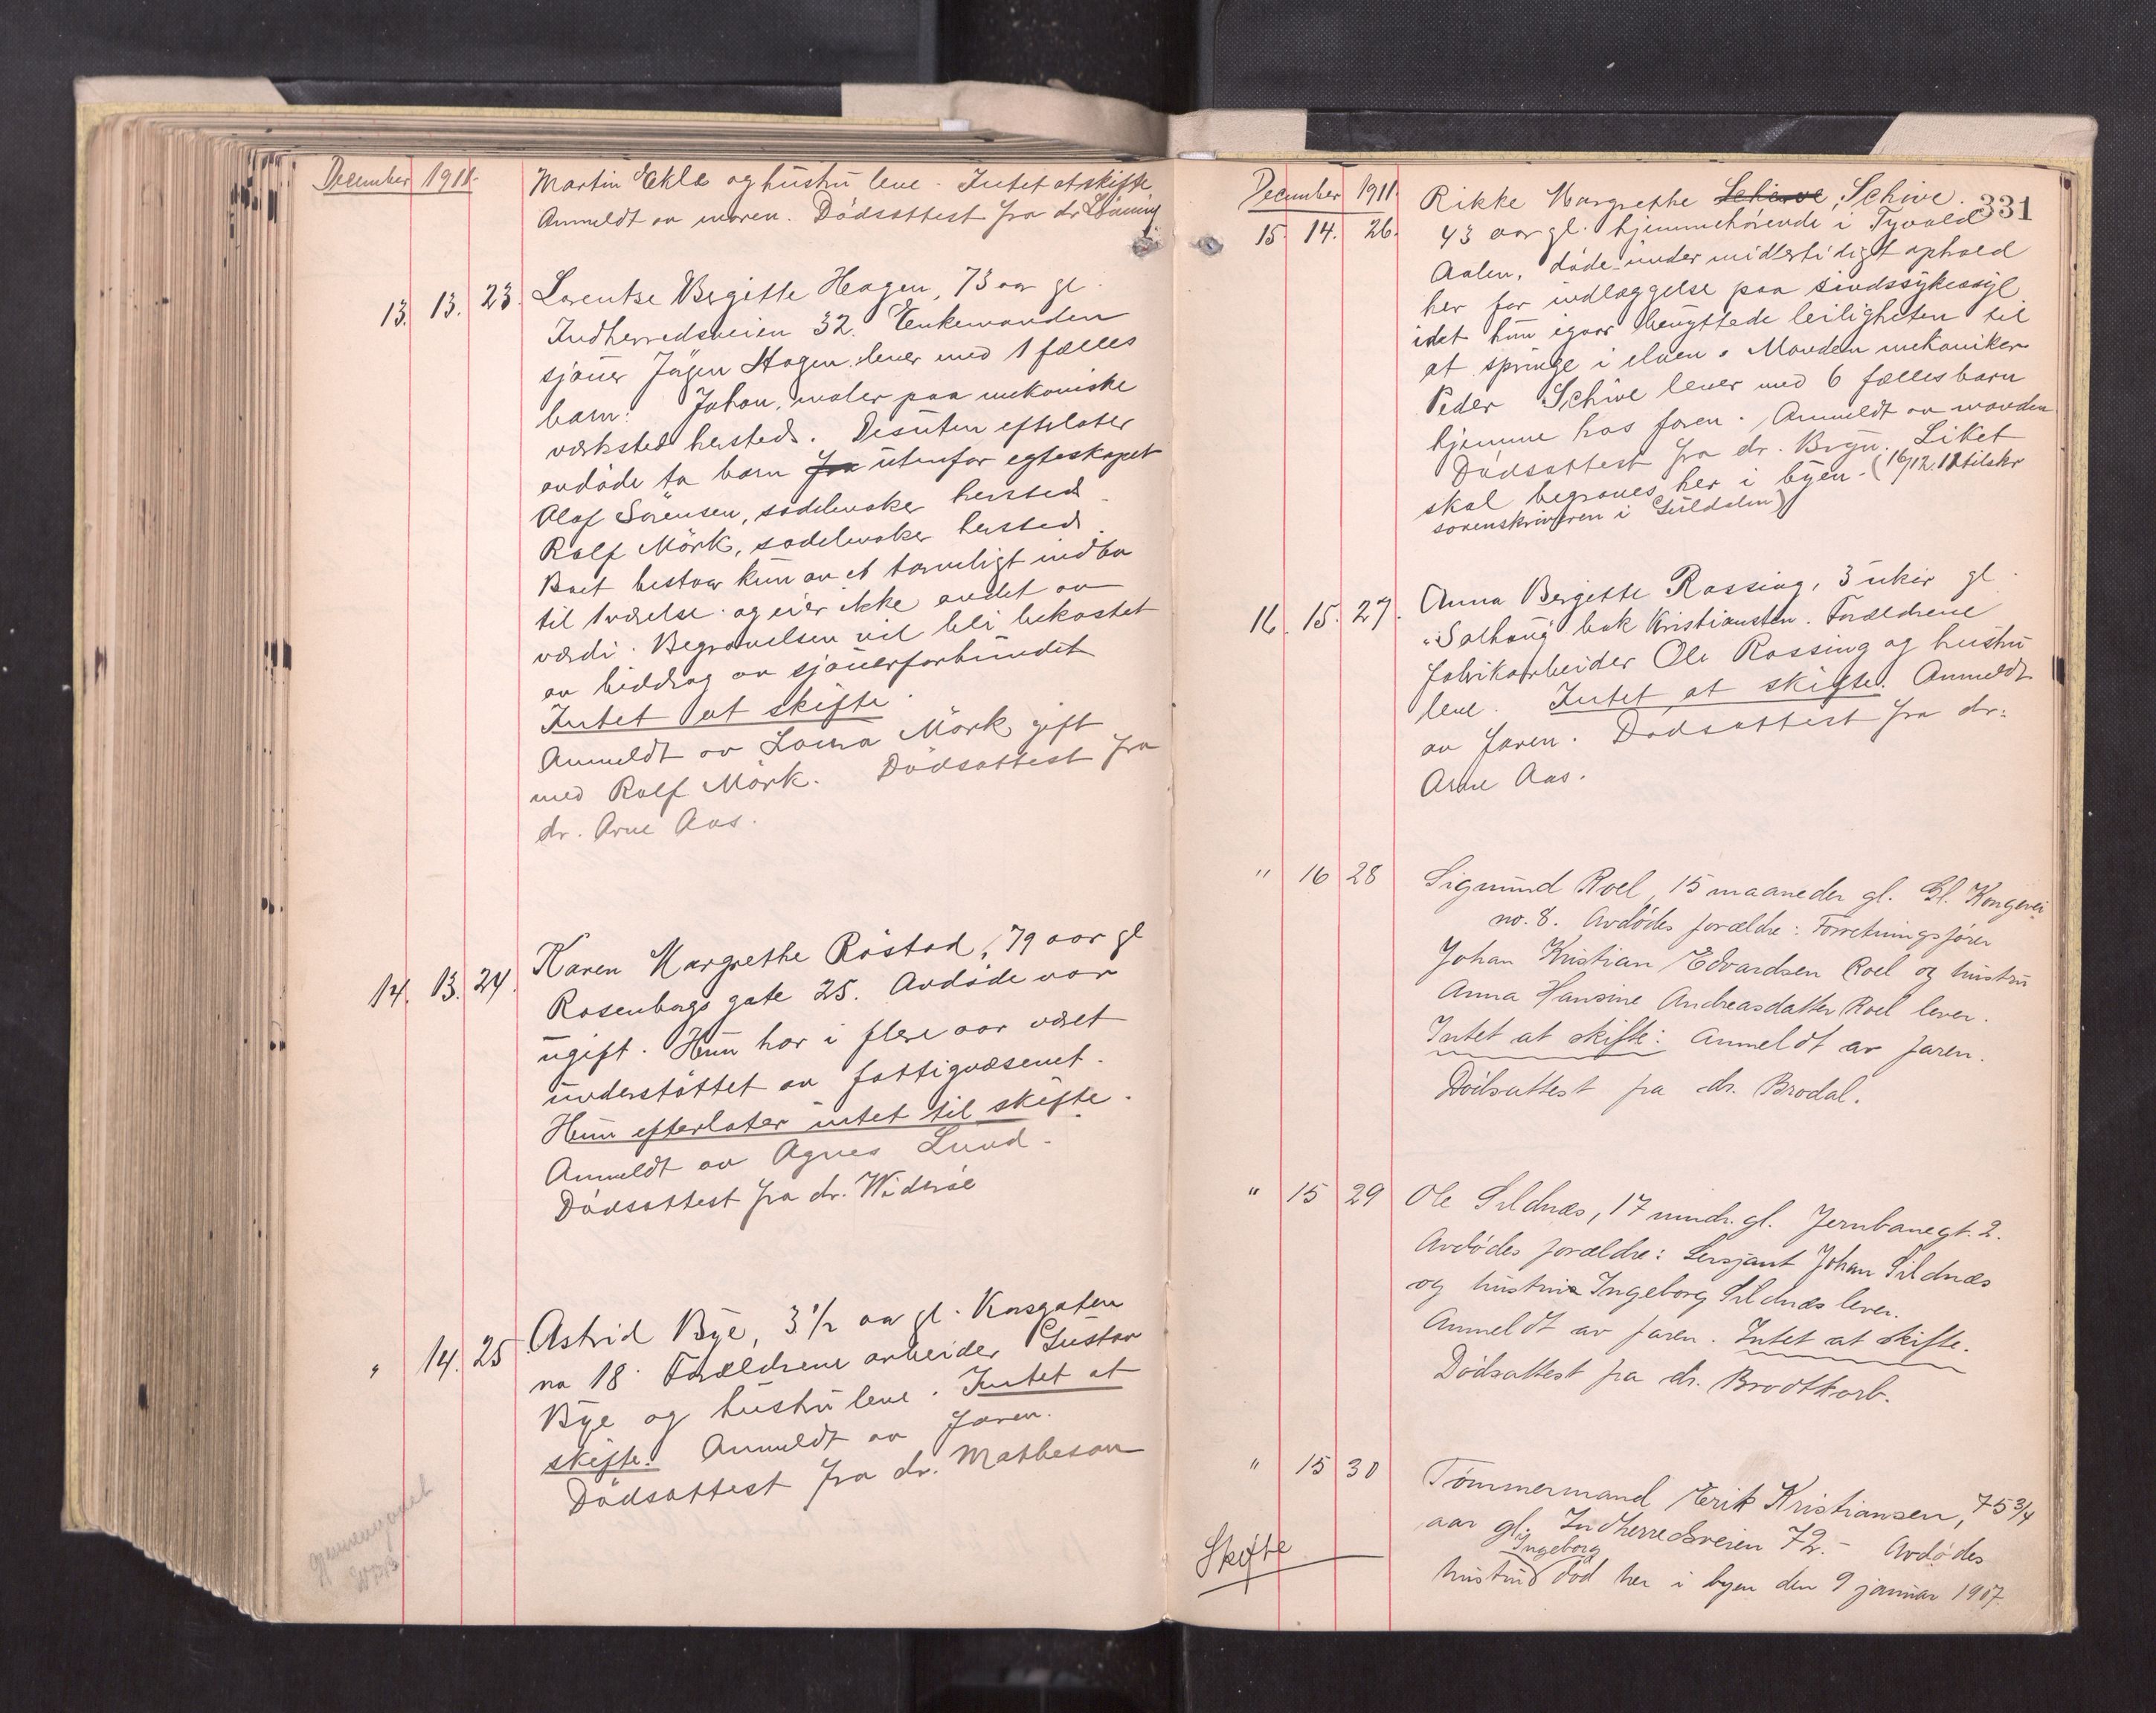 December 1911.
Martin Ekle og hustru leve. Intet at skifte
Anmeldt av moren. Dödsattest fra dr Lönning
13. 13. 23. Lorentse Bergitte Hagen, 73 aar gl.
Indherredsveien 32. Enkemanden
sjouer Jögen Hagen lever med 1 fælles
barn: Johan, maler paa mekaniske
værksted hersteds. Desuten efterlater
avdöde to barn fra utenfor egteskapet
Olaf Sörensen, sadelmaker hersted
Rolf Mörk, sadelmaker hersted.
Boet bestaar kun av et tarveligt indbo
til 1 værelse og eier ikke andet av
værdi. Begravelsen vil bli bekostet
av biddrag av sjouerforbundet
Intet at skifte.
Anmeldt av Laura Mörk gift
med Rolf Mörk. Dödsattest fra
dr. Arne Aas.
14. 13. 24. Karen Margrethe Röstad, 79 aar gl
Rosenborgs gate 25. Avdöde var
ugift. Hun har i flere aar været
understöttet av fattigvæsenet.
Hun efterlater intet til skifte.
Anmeldt av Agnes Lund.
Dödsattest fra dr. Wideröe
" 14. 25 Astrid Bye, 3 1/2 aar gl. Korsgaten
no 18. Forældrene arbeider Gustav
Bye og hustru leve. Intet at
skifte. Anmeldt av faren.
Dödsattest fra dr. Matheson
Gjennemgaaet
December 1911.
331
15. 14. 26. Rikke Margrethe Schieve, Schive.
43 aar gl. hjemmehörende i Tyvold
Aalen, döde under midlertidigt ophold
her for indlæggelse paa sindssykeasyl
idet hun igaar benyttede leiligheten til
at springe i elven. Manden mekaniker
Peder Schive lever med 6 fælles barn
hjemme hos faren. Anmeldt av manden
Dödsattest fra dr. Bryn. Liket
skal begraves her i byen. (16/12.11 tilskr
sorenskriveren i Guldalen)
16. 15. 27. Anna Bergitte Rossing, 3 uker gl.
"Solhaug" bak Kristiansten. Forældrene
fabrikarbeider Ole Rossing og hustru
leve. Intet at skifte. Anmeldt
av faren. Dödsattest fra dr.
Arne Aas.
" 16 28 Sigmund Roel, 15 maaneder gl. Gl. Kongevei
no. 8. Avdødes forældre: Forretningsfører
Johan Kristian Edvardsen Roel og hustru
Anna Hansine Andreasdatter Roel lever.
Intet at skifte: Anmeldt av faren.
Dödsattest fra dr. Brodal.
" 15 29 Ole Sildnæs, 17 mndr. gl. Jernbanegt. 2.
Avdødes forældre: Sersjant Johan Sildnæs
og hustru Ingeborg Sildnæs lever.
Anmeldt av faren. Intet at skifte.
Dödsattest fra dr. Brodtkorb.
" 15 30 Tømmermand Erik Kristiansen, 75 3/4
aar gl. Indherredsveien 72. - Avdødes
Ingeborg
hustru død her i byen den 9 januar 1907.
Skifte